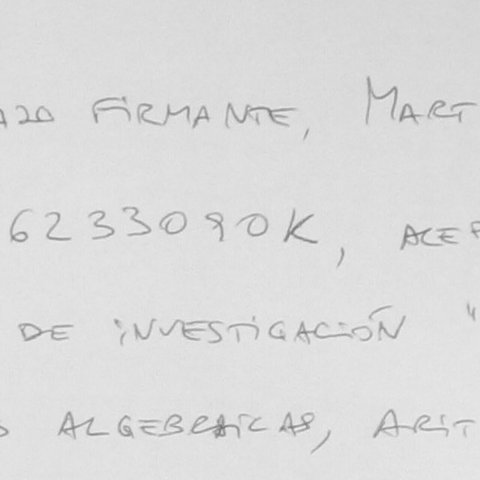 FIRMANTE, MART
6233090K, ACEP
DE INVESTIGACIÓN "
ALGEBRAICAS, ARIT